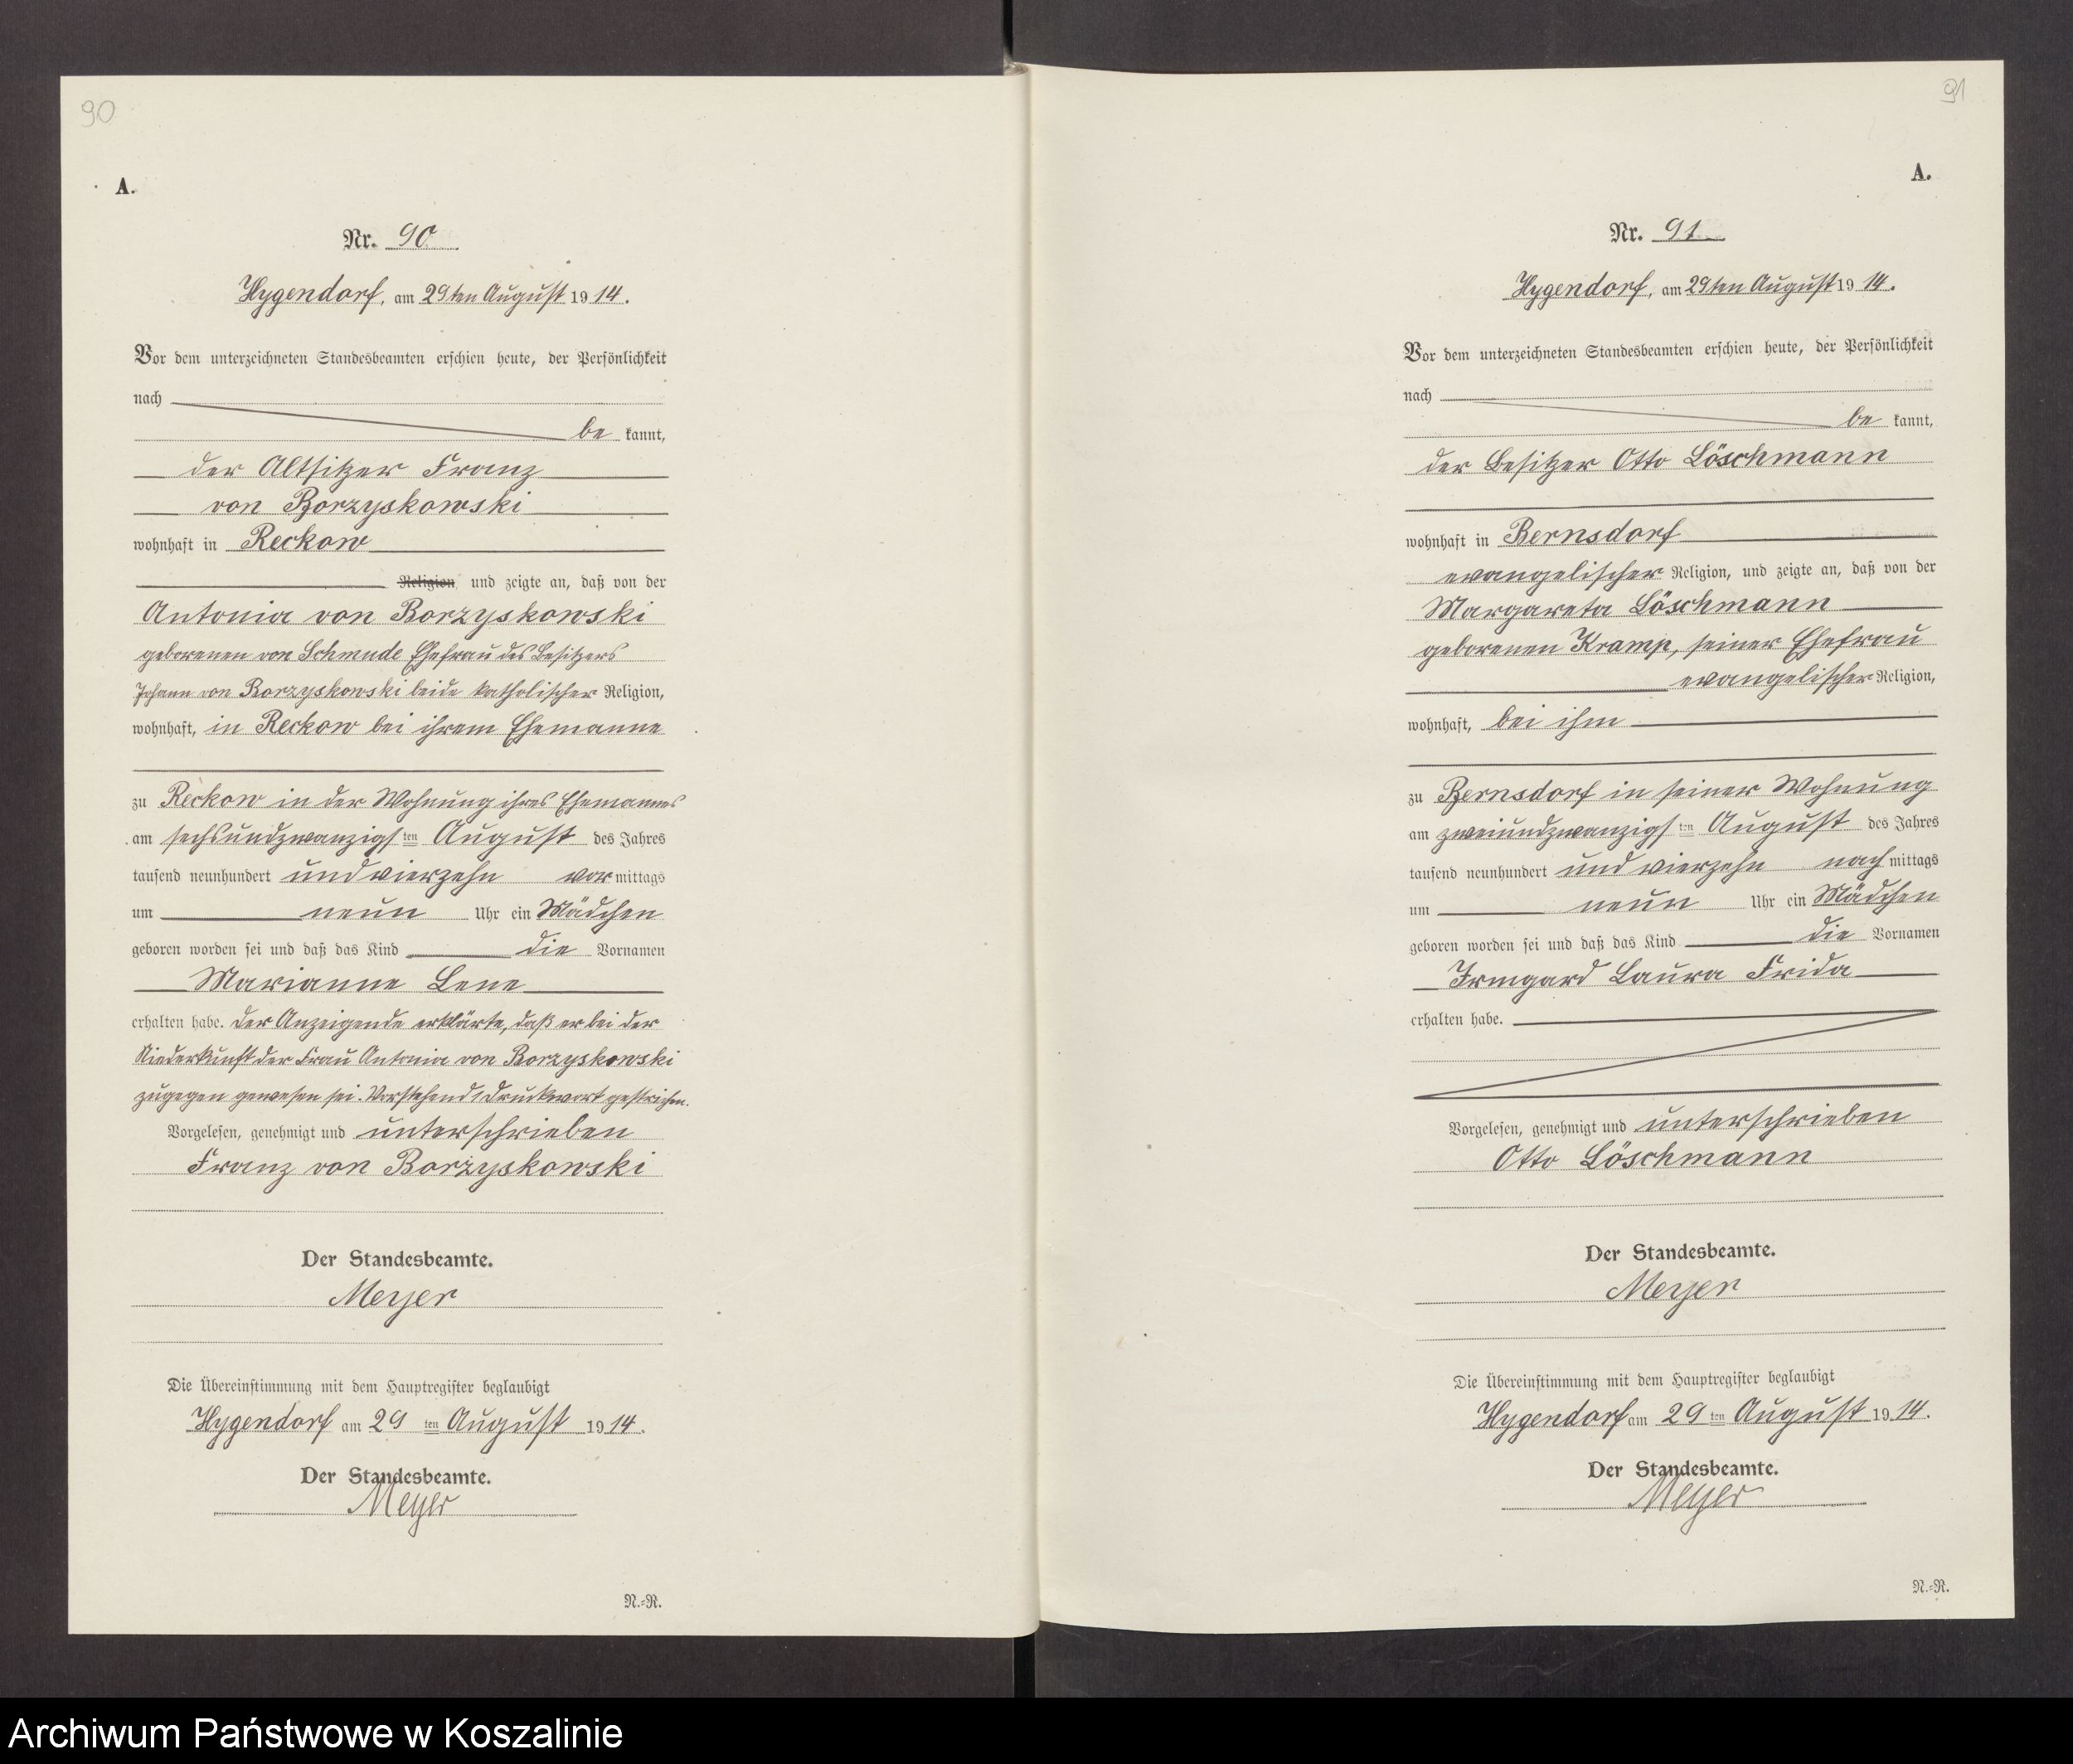 90
A.
Nr. 90
Hygendorf, am 29ten August 1914.
Vor dem unterzeichneten Standesbeamten erschien heute, der Persönlichkeit
nach
be kannt,
der Altsitzer Franz
von Borzyskowski
wohnhaft in Reckow
Religion, und zeigte an, daß von der
Antonia von Borzyskowski
geborenen von Schmude Ehefrau des Besitzers
Johann von Borzyskowski beide katholischer Religion,
wohnhaft, in Reckow bei ihrem Ehemanne
zu Reckow in der Wohnung ihres Ehemannes
am sechsundzwanzigsten August des Jahres
tausend neunhundert und vierzehn vormittags
um neun Uhr ein Mädchen
geboren worden sei und daß das Kind die Vornamen
Marianne Lene
erhalten habe. Der Anzeigende erklärte, daß er bei der
Niederkunft der Frau Antonia von Borzyskowski
zugegen gewesen sei. Vorstehend 1 Druckwort gestrichen.
Vorgelesen, genehmigt und unterschrieben
Franz von Borzyskowski
Der Standesbeamte.
Meyer
Die Übereinstimmung mit dem Hauptregister beglaubigt
Hygendorf am 29 ten August 1914.
Der Standesbeamte.
Meyer
N.-R.
91
A.
Nr. 91
Hygendorf, am 29ten August 1914.
Vor dem unterzeichneten Standesbeamten erschien heute, der Persönlichkeit
nach
be kannt,
der Besitzer Otto Löschmann
wohnhaft in Bernsdorf
evangelischer Religion, und zeigte an, daß von der
Margareta Löschmann
geborenen Kramp, seiner Ehefrau
evangelischer Religion,
wohnhaft, bei ihm
zu Bernsdorf in seiner Wohnung
am zweiundzwanzigsten August des Jahres
tausend neunhundert und vierzehn nachmittags
um neun Uhr ein Mädchen
geboren worden sei und daß das Kind die Vornamen
Irmgard Laura Frida
erhalten habe.
Vorgelesen, genehmigt und unterschrieben
Otto Löschmann
Der Standesbeamte.
Meyer
Die Übereinstimmung mit dem Hauptregister beglaubigt
Hygendorf am 29 ten August 1914.
Der Standesbeamte.
Meyer
N.-R.
Archiwum Państwowe w Koszalinie